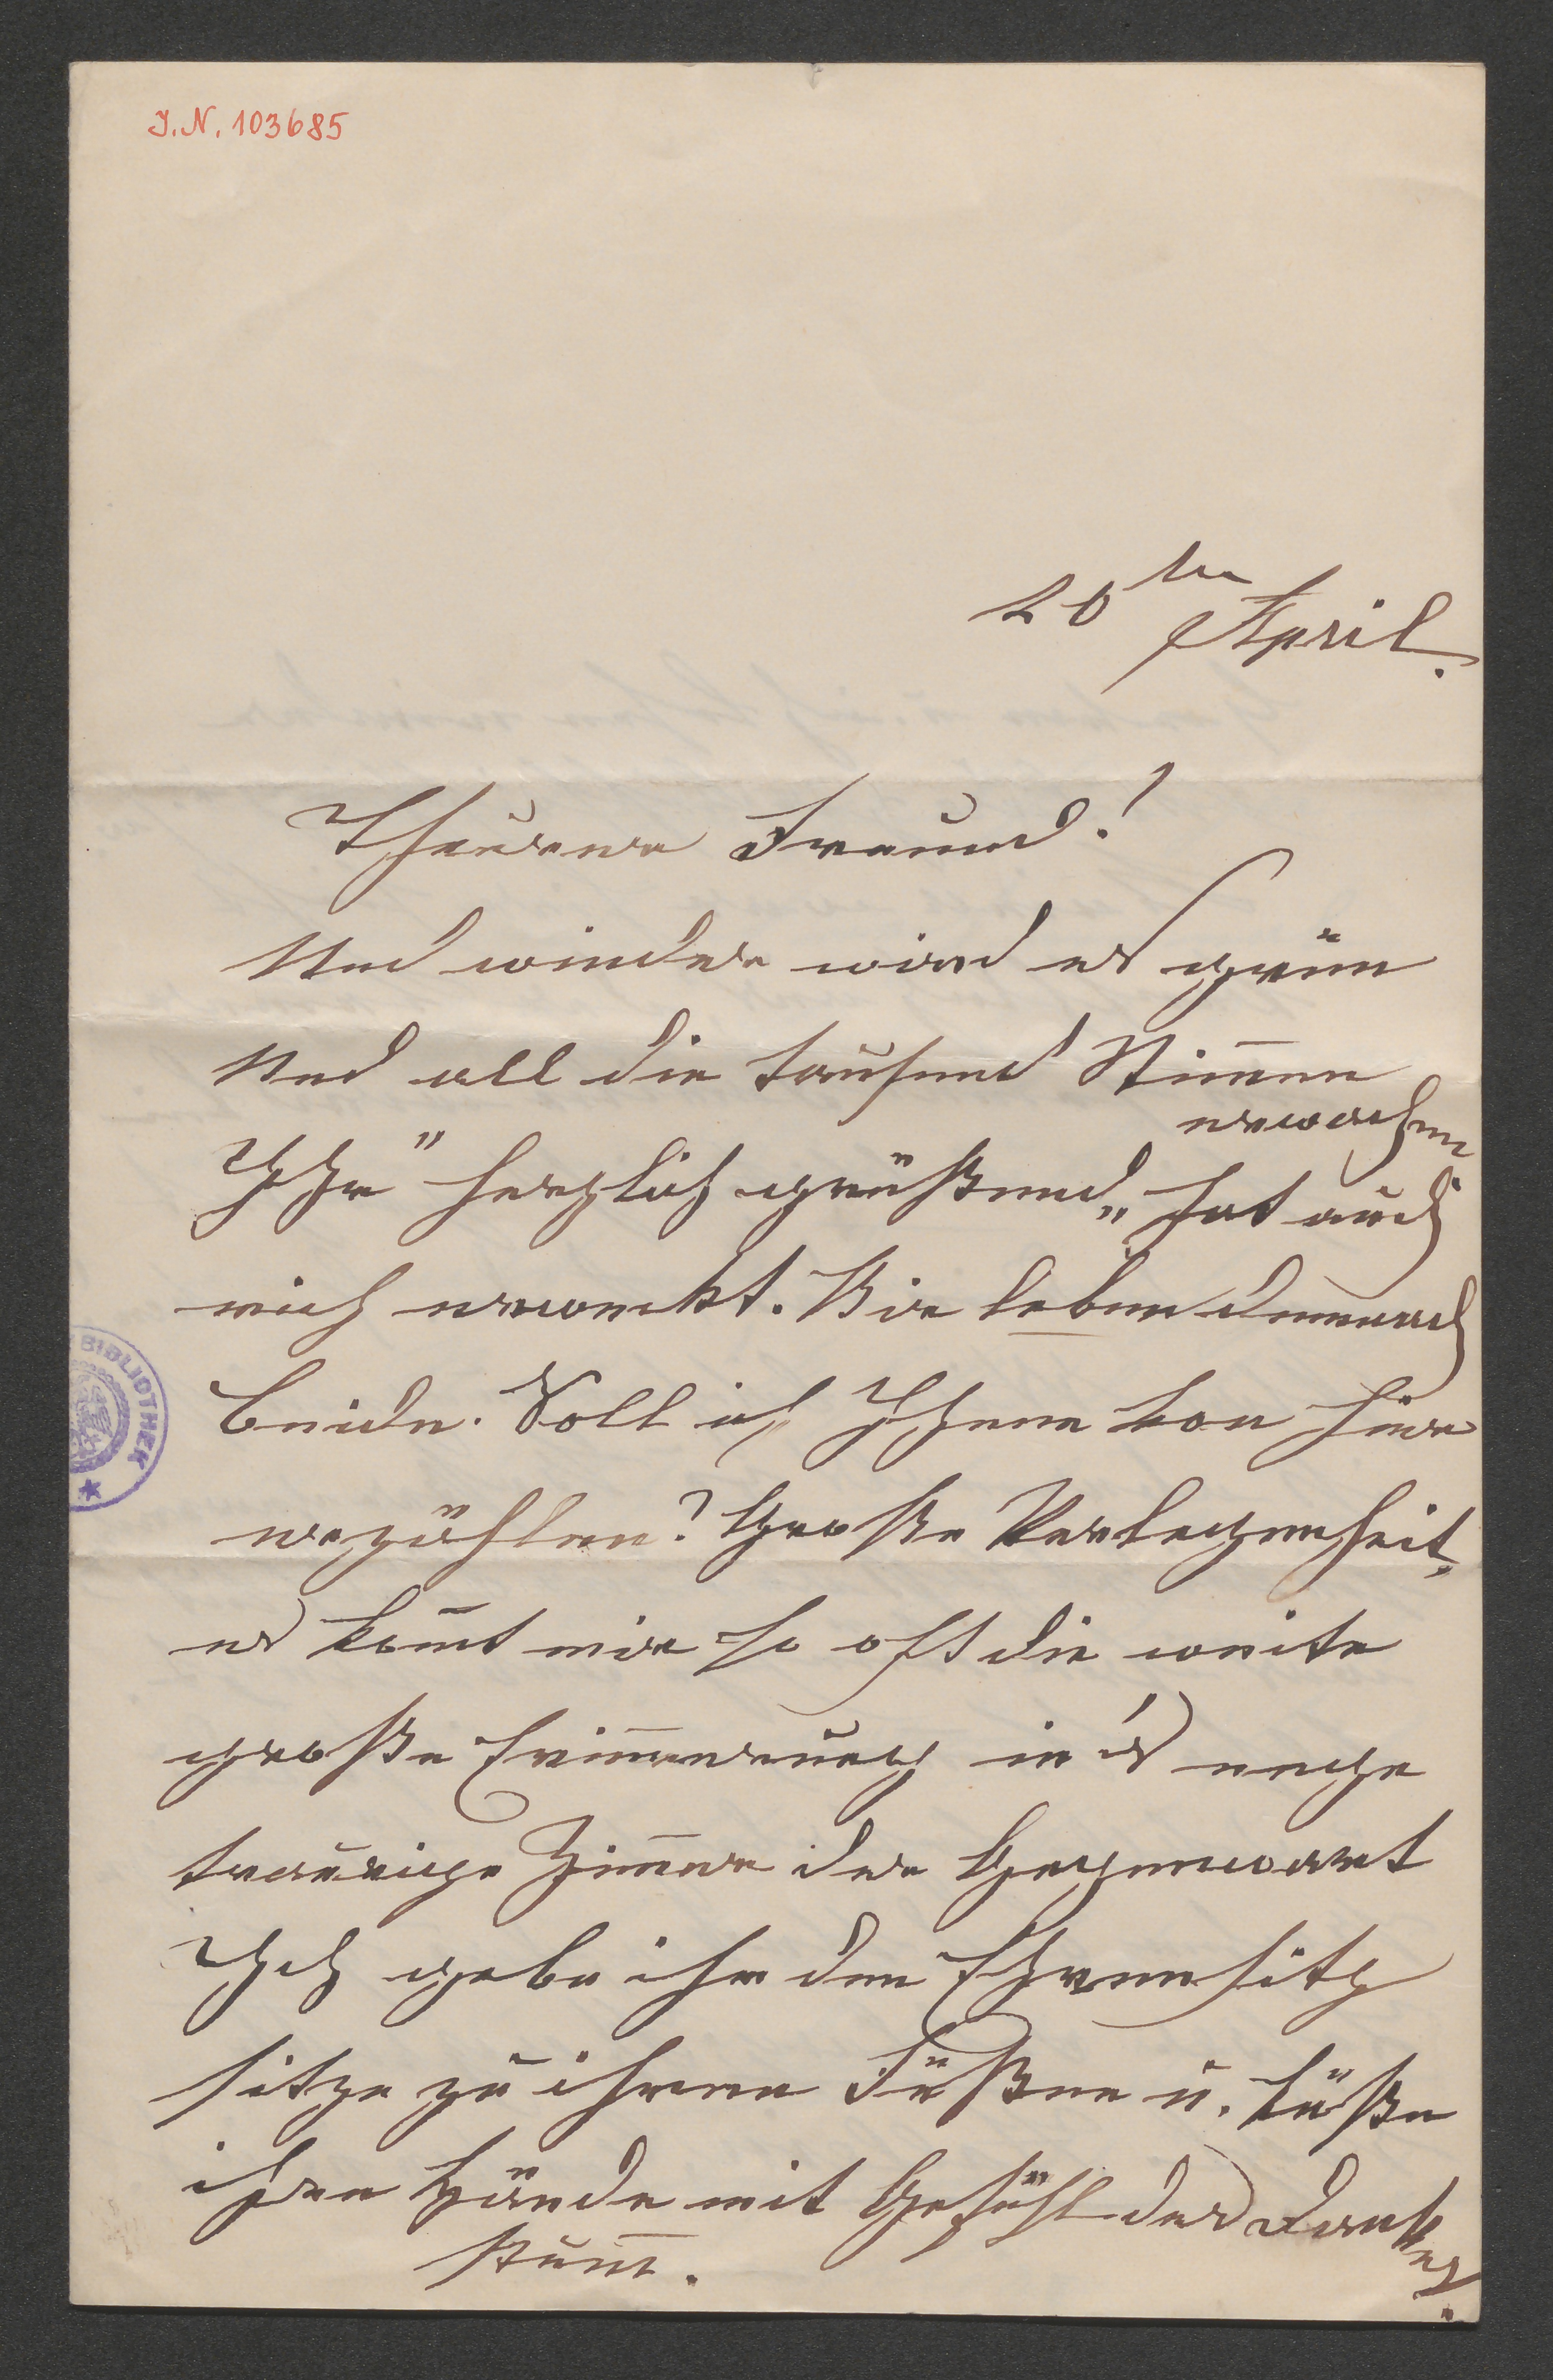 J. N. 103685
20ten April.
Theurer Freund!
Und wieder wird es grün
Und all die tausend Stim̅en
erwachen
Ihr "herzlich grüßend„ hat auch
mich erweckt. Wir leben demnach
beide. Soll ich Ihnen von hier
erzählen? Große Verlegenheit,
es kom̅t mir so oft die weite
große Erin̅erung in's enge
traurige Zim̅er der Gegenwart
Ich gebe ihr den Ehrensitz
sitze zu ihren Füßen u. küße
ihre Hände mit Gefühl des Dankes
stum̅.
BIBLIOTHEK